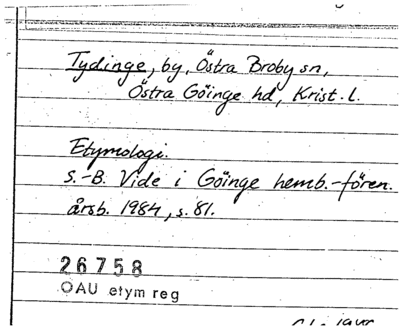 Tydinge, by, Östra Broby sn,
Östra Göinge hd, Krist. l.
Etymologi.
S.-B. Vide i Göinge hemb.-fören.
årsb. 1984, s. 81.
26758
OAU etym reg